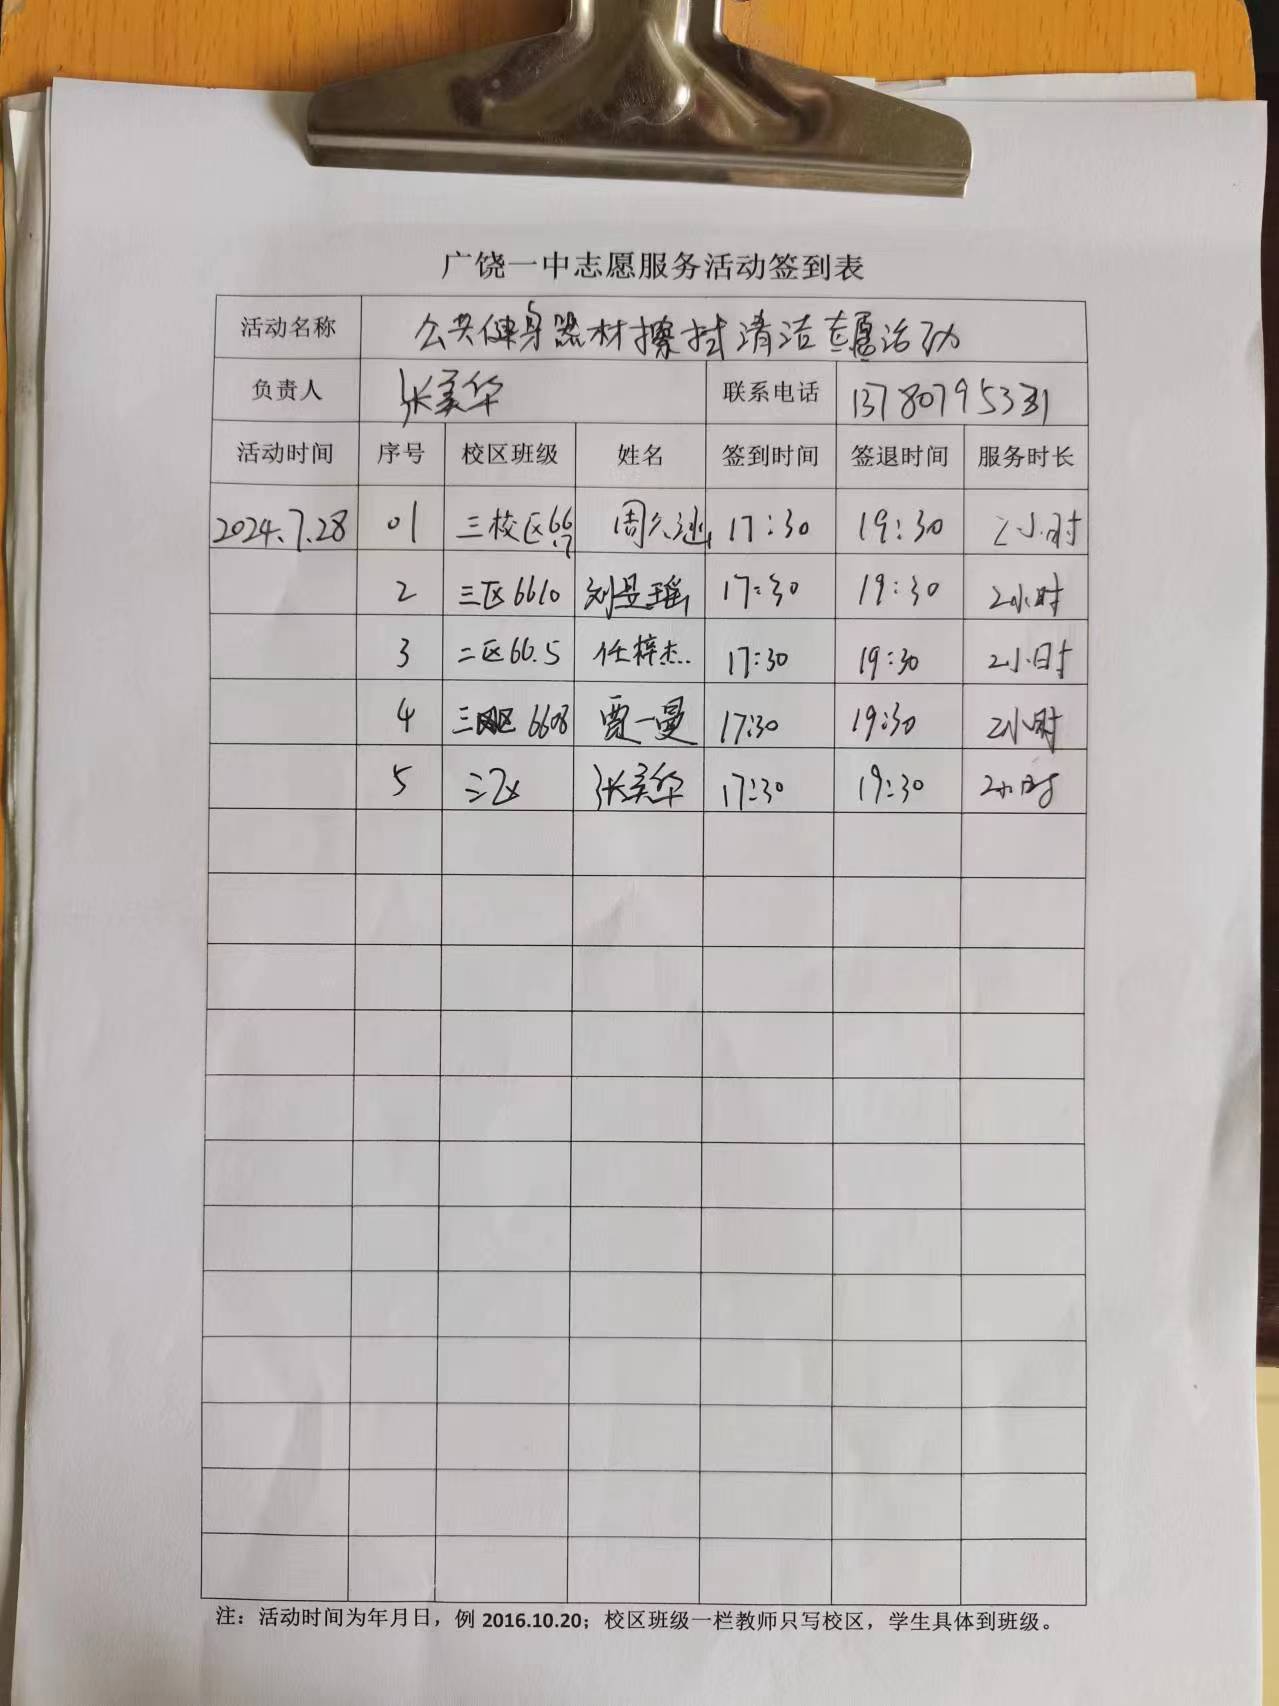 广饶一中志愿服务活动签到表
活动名称 公共健身器材擦拭清洁志愿活动
负责人 张美华 联系电话 13780795331
活动时间 序号 校区班级 姓名 签到时间 签退时间 服务时长
2024.7.28 01 三校区66.7 周久 17:30 19:30 2小时
2 三区6610 刘昱瑶 17:30 19:30 2小时
3 二区66.5 任梓杰 17:30 19:30 2小时
4 三区6608 贾一曼 17:30 19:30 2小时
5 三区 张美华 17:30 19:30 2小时
注：活动时间为年月日，例 2016.10.20；校区班级一栏教师只写校区，学生具体到班级。